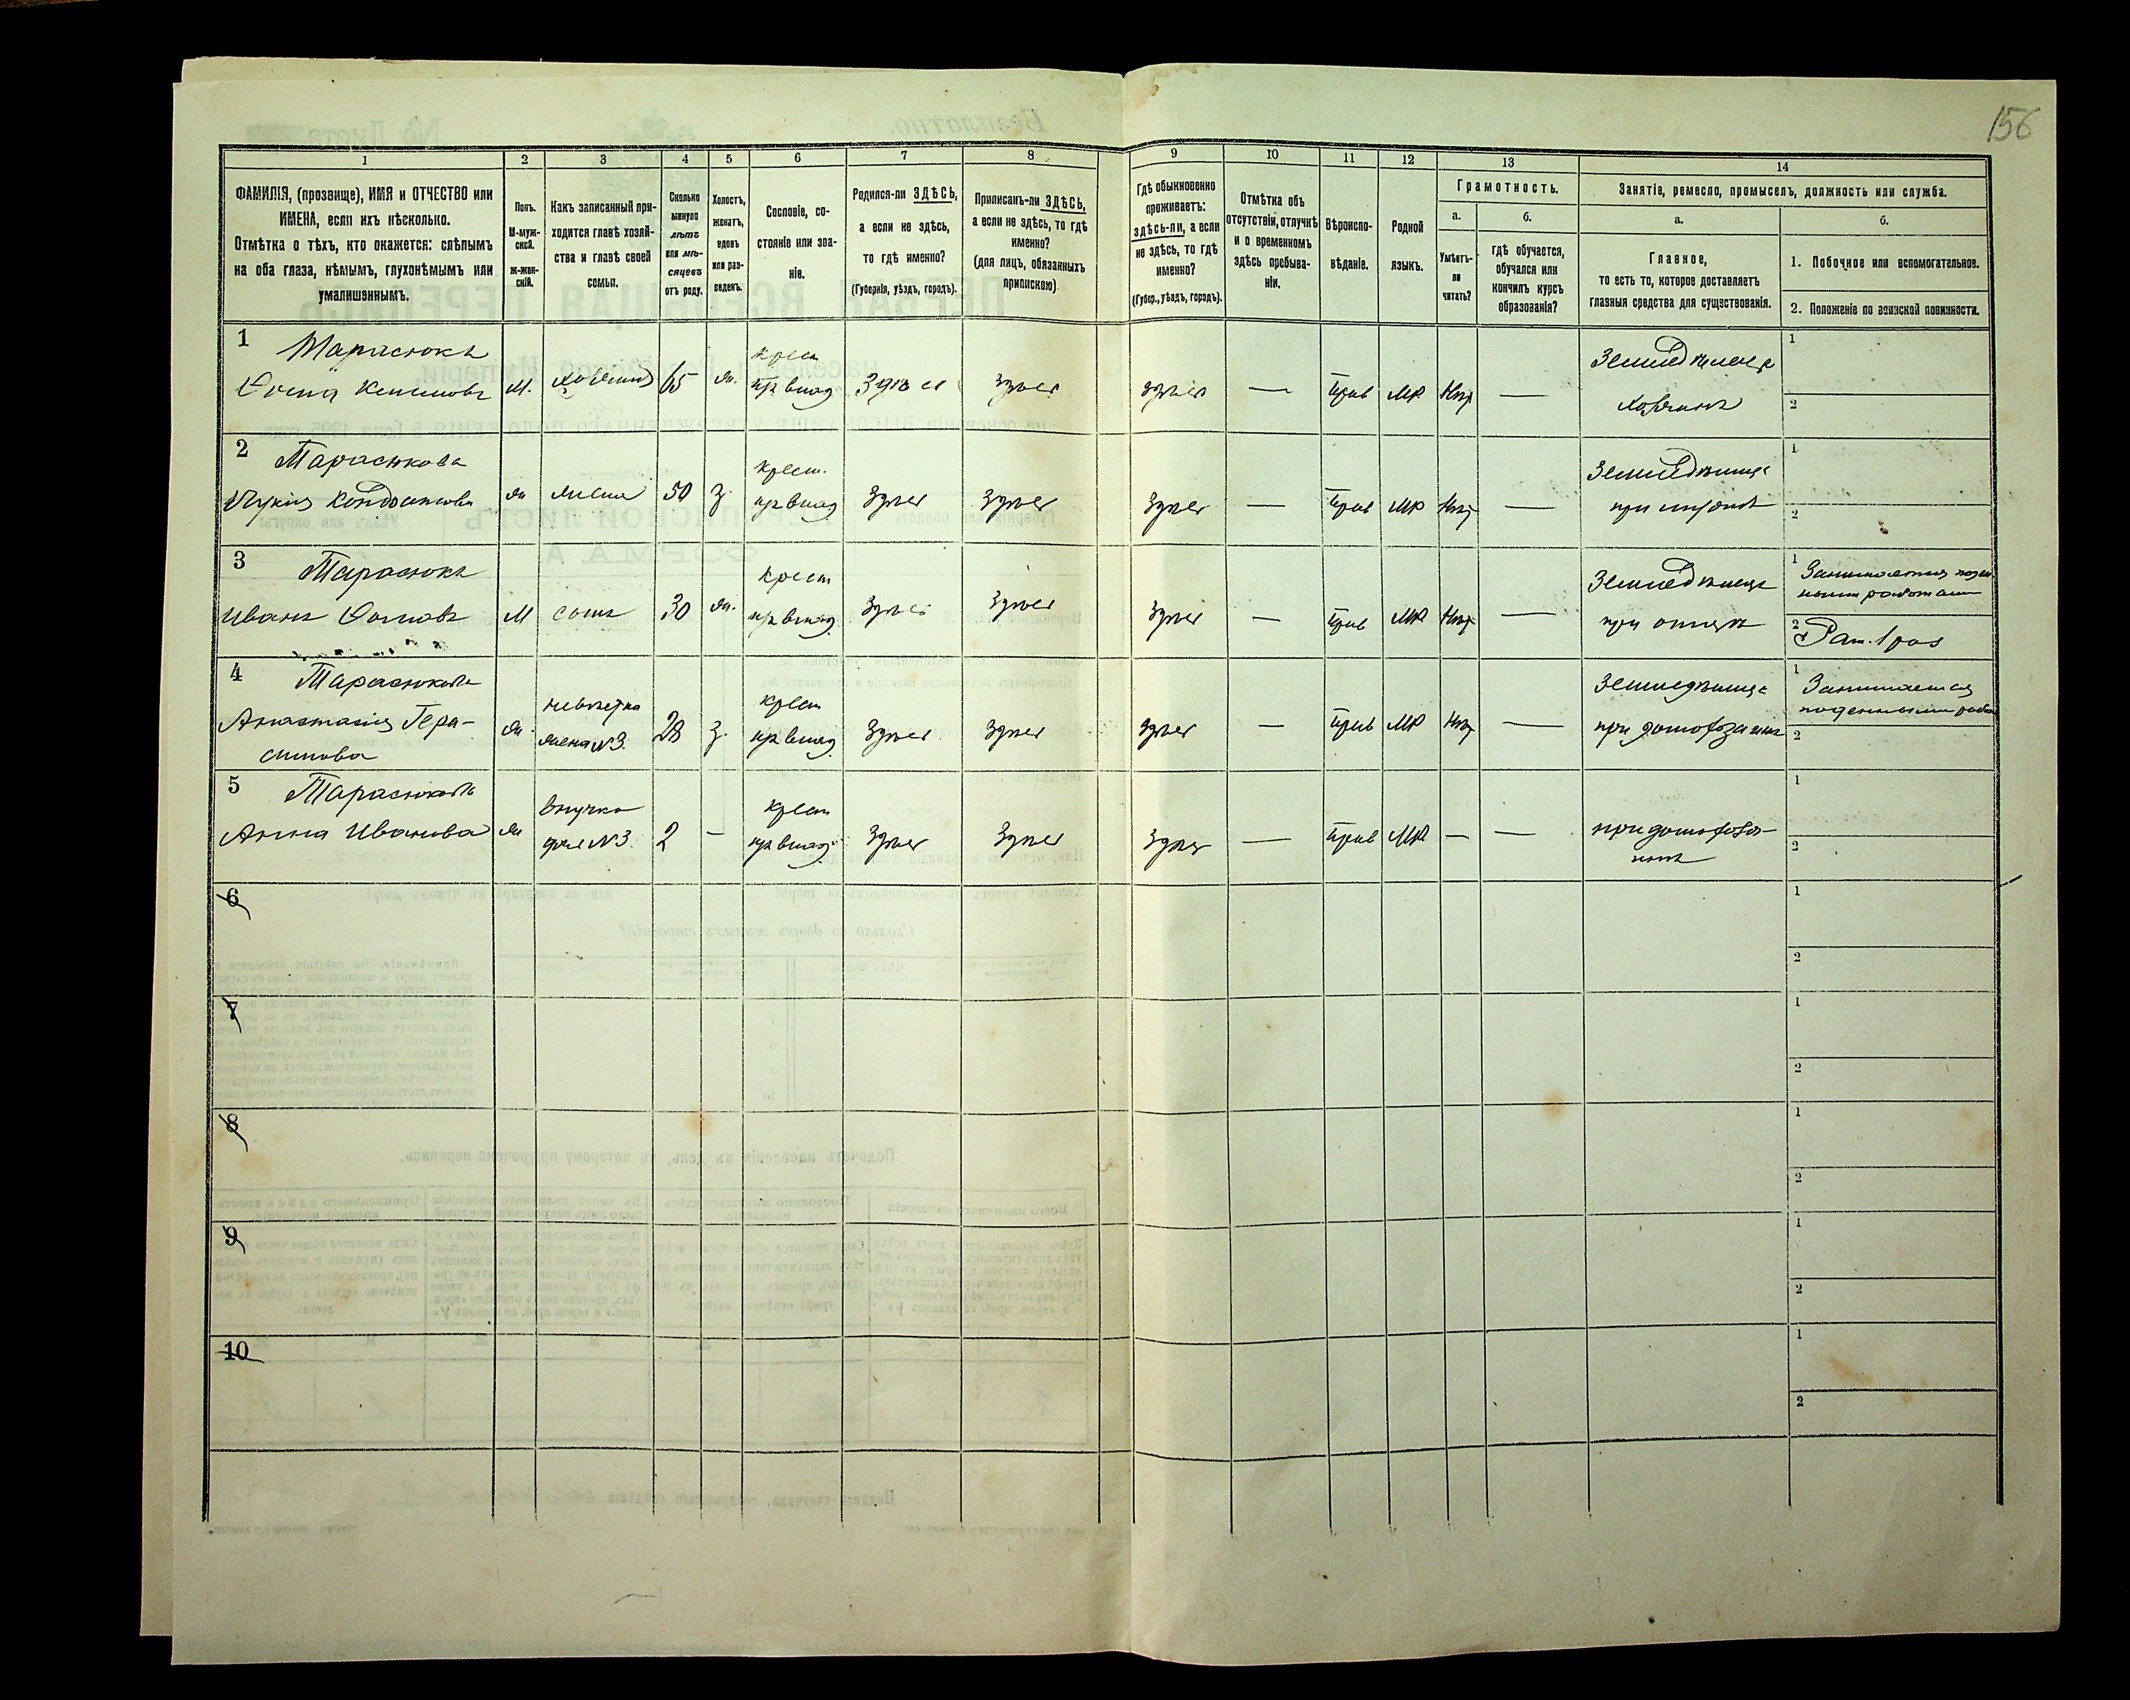 156
1
2
3
4
5
6
7
8
9
10
11
12
13
14
ФАМИЛІЯ, (прозвище), ИМЯ и ОТЧЕСТВО или
ИМЕНА, если ихъ нѣсколько.
Отмѣтка о тѣхъ, кто окажется: слѣпымъ
на оба глаза, нѣмымъ, глухонѣмымъ или
умалишеннымъ.
Полъ.
М-муж-
ской.
ж-жен-
скій.
Какъ записанный при-
ходится главѣ хозяй-
ства и главѣ своей
семьи.
Сколько
минуло
лѣтъ
или мѣ-
сяцевъ
отъ роду.
Холостъ,
женатъ,
вдовъ
или раз-
веденъ.
Сословіе, со-
стояніе или зва-
ніе.
Родился-ли ЗДѢСЬ,
а если не здѣсь,
то гдѣ именно?
(Губернія, уѣздъ, городъ).
Приписанъ-ли ЗДѢСЬ,
а если не здѣсь, то гдѣ
именно?
(для лицъ, обязанныхъ
припискою)
Гдѣ обыкновенно
проживаетъ:
здѣсь-ли, а если
не здѣсь, то гдѣ
именно?
(Губер., уѣздъ, городъ).
Отмѣтка объ
отсутствіи, отлучкѣ
и о временномъ
здѣсь пребыва-
ніи.
Вѣроиспо-
вѣданіе.
Родной
языкъ.
Грамотность.
а.
б.
Умѣетъ-
ли
читать?
гдѣ обучается,
обучался или
кончилъ курсъ
образованія?
Занятіе, ремесло, промыселъ, должность или служба.
а.
б.
Главное,
то есть то, которое доставляетъ
главныя средства для существованія.
1. Побочное или вспомогательное.
2. Положеніе по воинской повинности.
1 Тарасюкъ
м. хозяинъ 65 ж. крест
из влад здѣсь здѣсь здѣсь — Прав МР Нѣт — Земледѣлецъ
хозяинъ
1
2
2 Тарасюкова
Лукія Кондратова ж жена 50 з. крест.
из влад здѣсь здѣсь здѣсь — Прав МР Нѣт — Земледѣлица
при мужѣ
1
2
3 Тарасюкъ
Иванъ м сынъ 30 ж. крест
из влад здѣсь здѣсь здѣсь — Прав МР Нѣт — Земледѣлецъ
при отцѣ
1 Занимается поден
ными работами
2 Рат. 1 раз
4 Тарасюкова
Анастасія Гера-
симова ж. невѣстка
жена №3. 28 з. крест
из влад здѣсь здѣсь здѣсь — Прав МР Нѣт — Земледѣлица
при домохозяинѣ
1 Занимается
поденными рабо
2
5 Тарасюкова
Анна Иванова ж внучка
дочь №3. 2 — крест
из влад здѣсь здѣсь здѣсь — Прав МР — — при домохозя-
инѣ
1
2
6
1
2
7
1
2
8
1
2
9
1
2
10
1
2